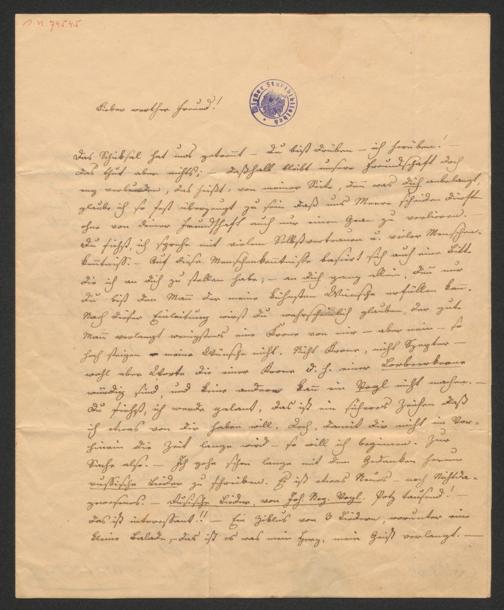 Lieber werther Freund!
Das Schiksal hat uns getrennt – du bist drüben – ich herüben! –
das thut aber nichts; deßhalb bleibt unsere Freundschaft doch
eng verbunden, das heißt, von meiner Seite, den was dich anbelangt,
glaube ich so fest überzeugt zu sein daß uns Meere scheiden dürften
ohne von deiner Freundschaft auch nur einen Gran zu verlieren.
Du siehst, ich spreche mit vielem Selbstvertrauen u. vieler Menschen-
kenntniß. – Auf diese Menschenkenntniß basirt sich auch eine Bitte
die ich an dich zu stellen habe, – an dich ganz allein, den nur
du bist der Mann der meine kühnsten Wünsche erfüllen kan.
Nach dieser Einleitung wirst du wahrscheinlich glauben, der gute
Mann verlangt wenigstens eine Krone von mir – aber nein – so
hoch steigen meine Wünsche nicht. Nicht Krone, nicht Szepter –
wohl aber Worte die einer Krone d. h. einer Lorbeerkrone
würdig sind, und keine andern kan ein Vogl nicht machen. –
Du siehst, ich werde galant, das ist ein sicheres Zeichen daß
ich etwas von dir haben will. Doch, damit dir nicht im Vor-
hinein die Zeit lange wird – so will ich beginnen. Zur
Sache also. – Ich gehe schon lange mit dem Gedanken herum
russische Lieder zu schreiben. Es ist etwas Neues – noch Nichtda-
gewesenes. – Russische Lieder, von Joh. Nep. Vogl. Potz tausend!
das ist interessant!! – Ein Ziklus von 3 Liedern, worunter eine
kleine Balade, – das ist es was mein Herz, mein Geist verlangt. –